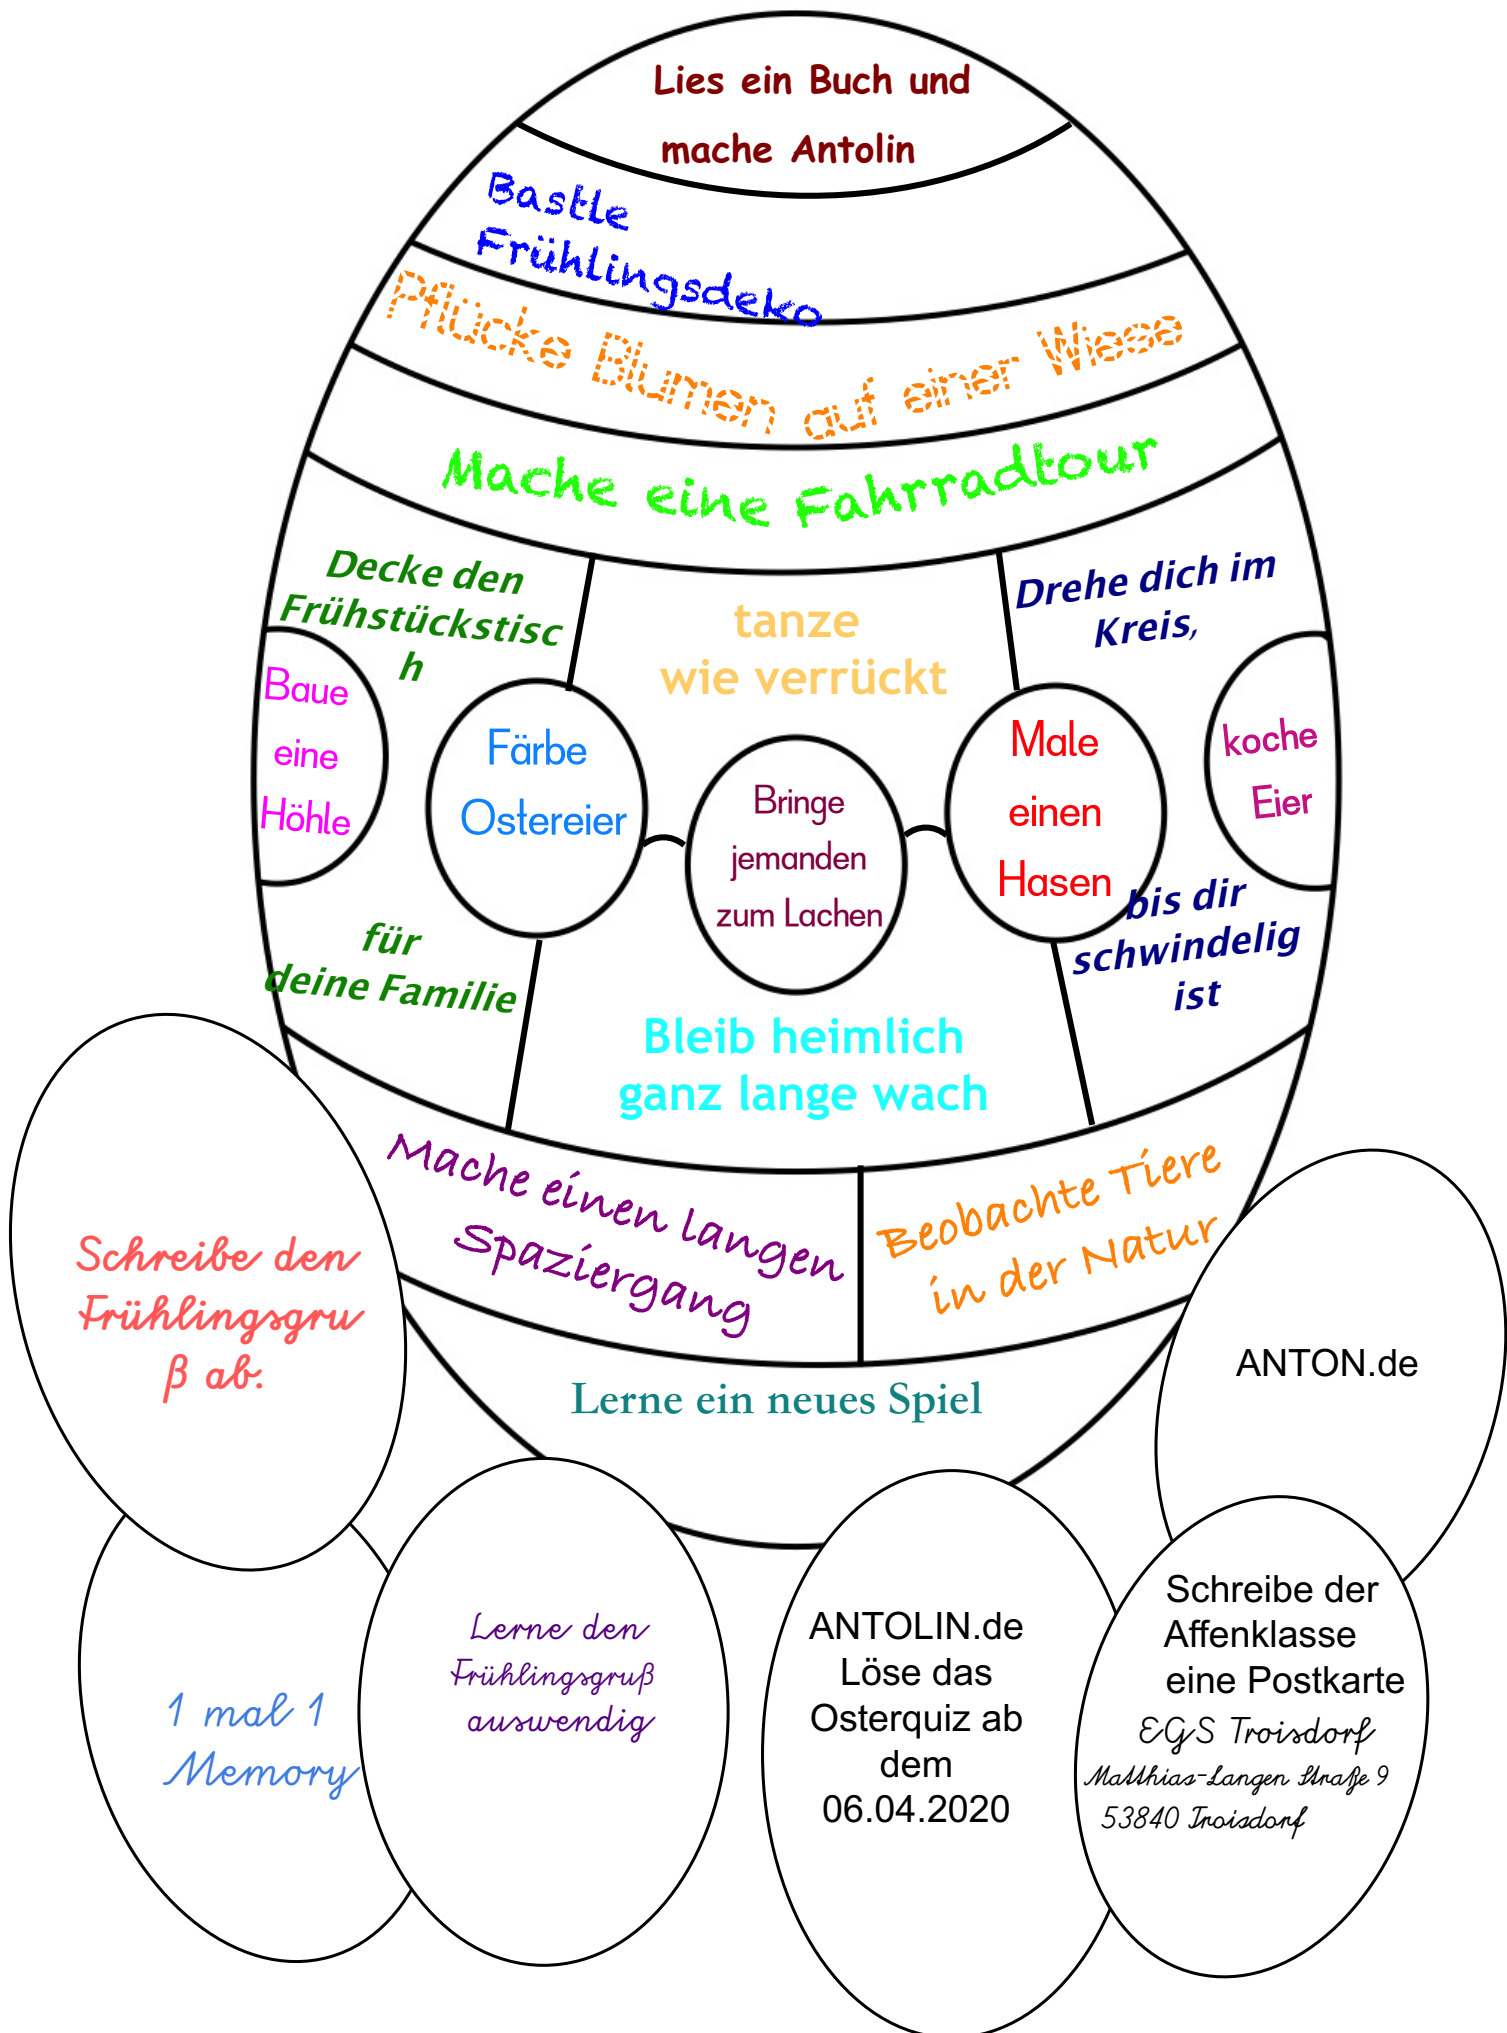 Lies ein Buch und
mache Antolin
Bastle
Frühlingsdeko
Pflücke Blumen auf einer Wiese
Mache eine Fahrradtour
Decke den
Frühstückstisc
h
für
deine Familie
tanze
wie verrückt
Drehe dich im
Kreis,
bis dir
schwindelig
ist
Baue
eine
Höhle
Färbe
Ostereier
Bringe
jemanden
zum Lachen
Male
einen
Hasen
koche
Eier
Bleib heimlich
ganz lange wach
Mache einen langen
Spaziergang
Beobachte Tiere
in der Natur
Lerne ein neues Spiel
Schreibe den
Frühlingsgru
ß ab.
ANTON.de
1 mal 1
Memory
Lerne den
Frühlingsgruß
auswendig
ANTOLIN.de
Löse das
Osterquiz ab
dem
06.04.2020
Schreibe der
Affenklasse
eine Postkarte
EGS Troisdorf
Matthias-Langen Straße 9
53840 Troisdorf